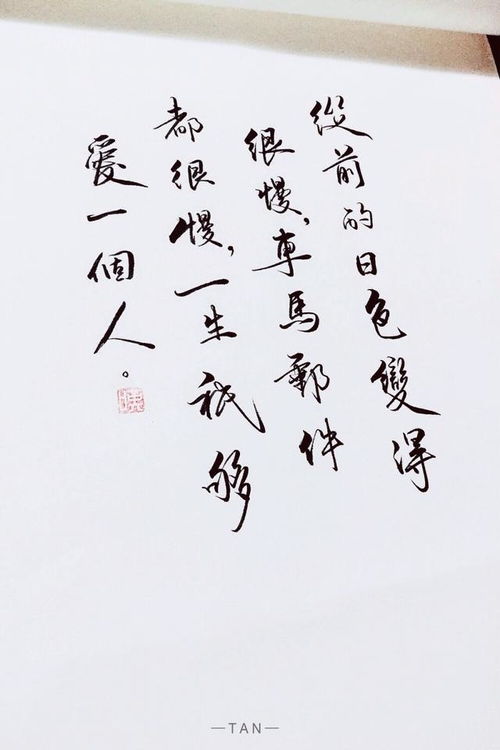 從前的日色變得
很慢，車馬郵件
都很慢，一生祇够
愛一個人。
—TAN—